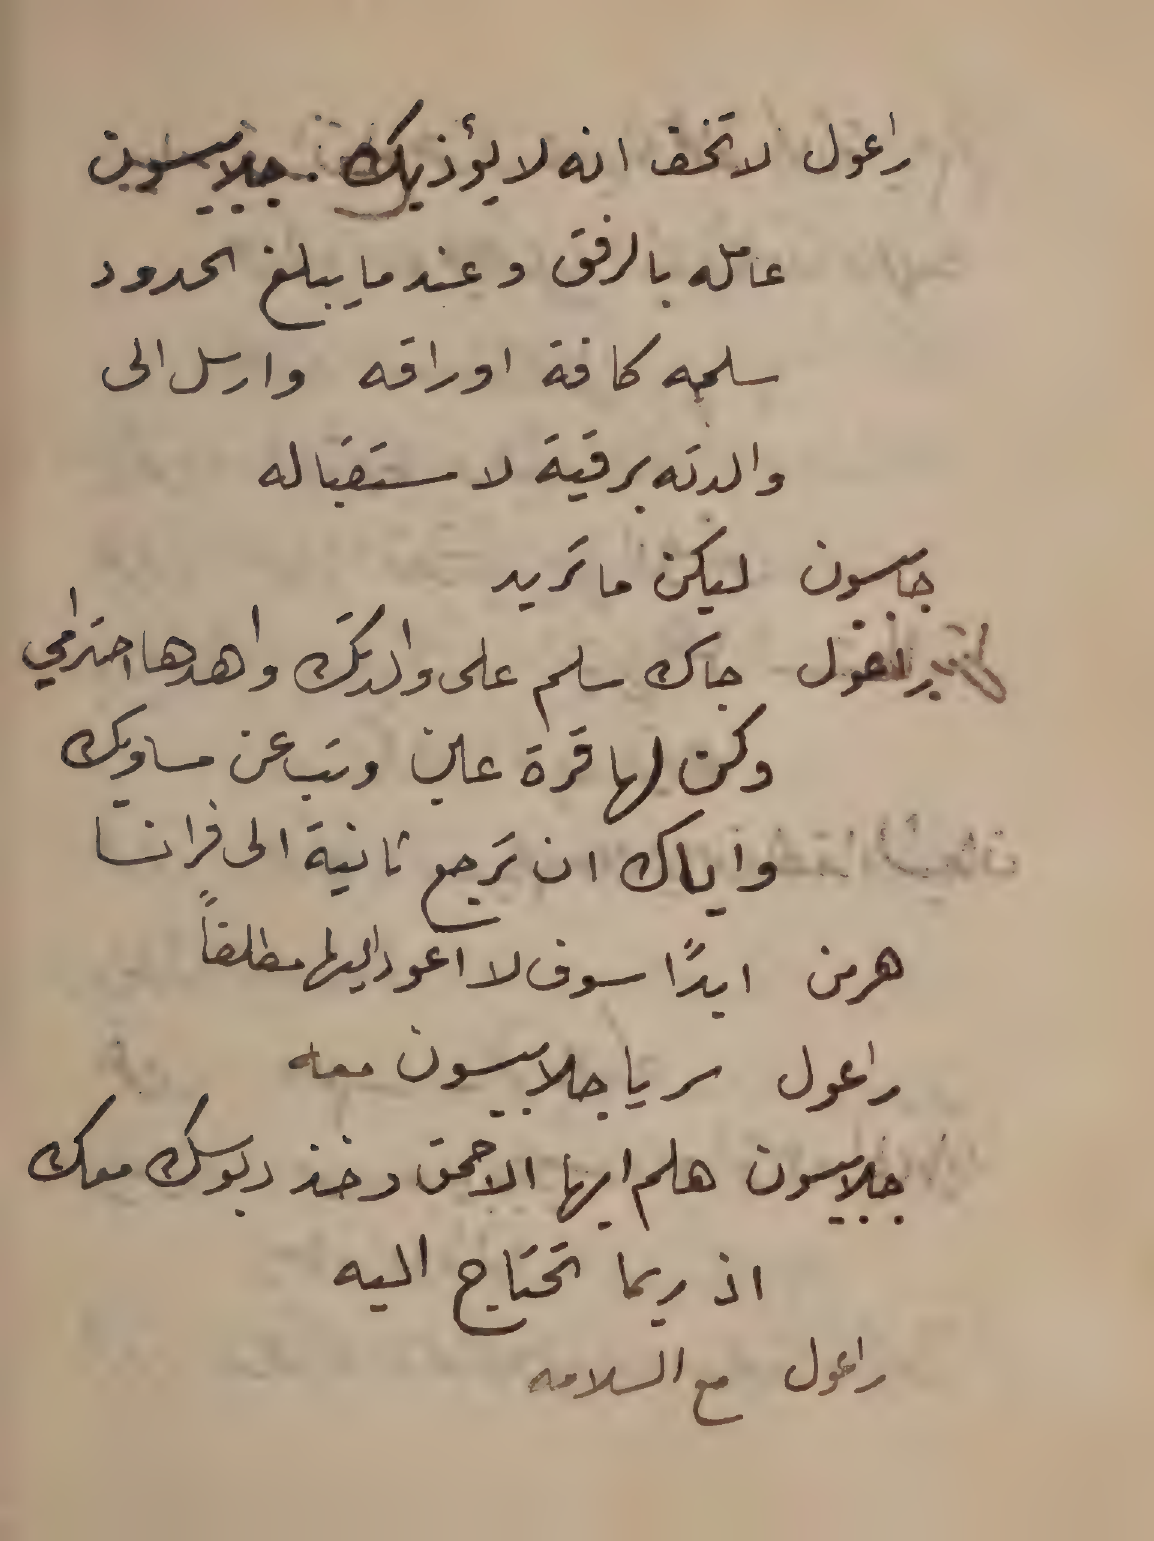 راعول لا تخف انه لا يؤذيك . جلابسون
عامله بالرفق وعندما يبلغ الحدود
سلمه كافة اوراقه وارسل الى
والدته برقية لاستقباله
جابسون ليكن ما تريد
راعول جاك سلم على والدتك واهدها احترامي
وكن لها قرة عين وتب عن مساويك
واياك ان ترجع ثانية الى فرانسا
هرمن ابدًا سوف لا اعود اليها مطلقاً
راعول سر يا جلابسون معه
جلابسون هلم ايها الاحمق وخذ دبوسك معك
اذ ربما تحتاج اليه
راعول مع السلامه